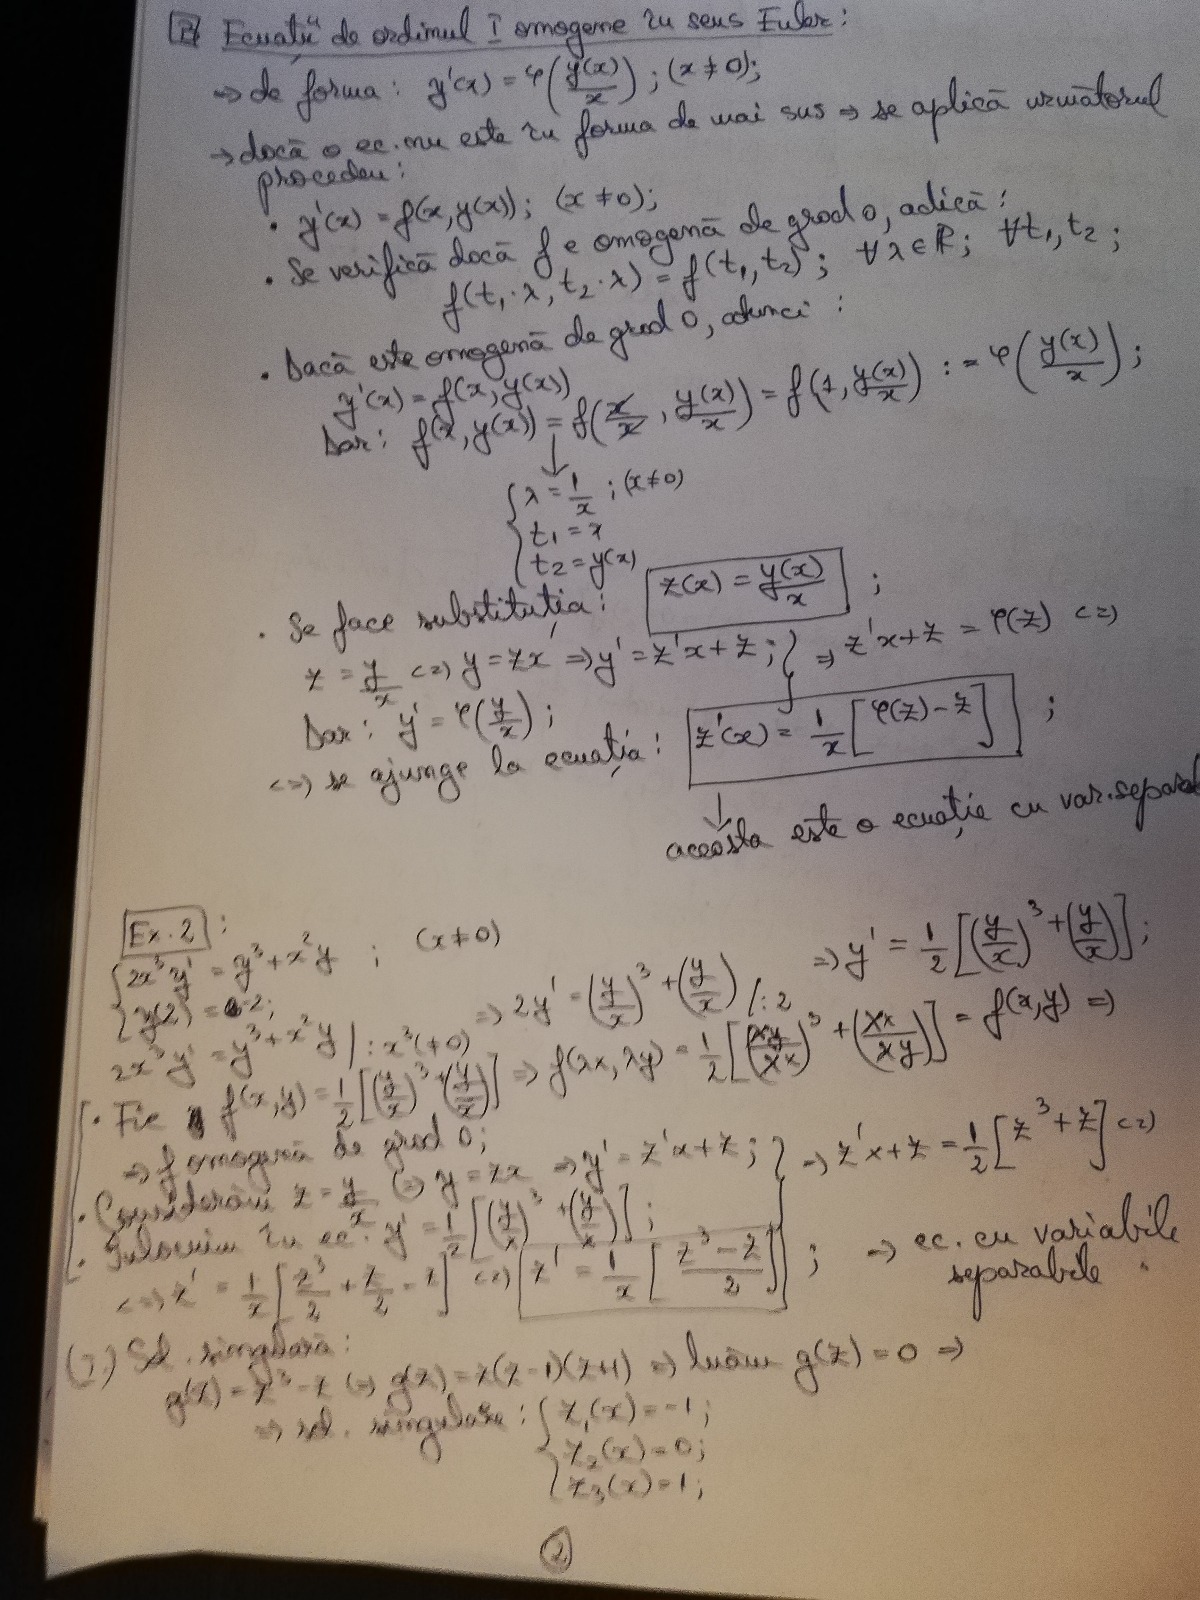 2 Ecuații de ordinul I omogene în sens Euler:
→ de forma: y'(x) = φ(y(x)/x); (x ≠ 0);
→ dacă o ec. nu este în forma de mai sus ⇒ se aplică următorul
procedeu:
• y'(x) = f(x, y(x)); (x ≠ 0);
• Se verifică dacă f e omogenă de grad 0, adică:
f(t₁·λ, t₂·λ) = f(t₁, t₂); ∀λ∈ℝ; ∀t₁, t₂;
• Dacă este omogenă de grad 0, atunci:
y'(x) = f(x, y(x))
Dar: f(x, y(x)) = f(x/x, y(x)/x) = f(1, y(x)/x) := φ(y(x)/x);
↓
{ λ = 1/x; (x≠0)
t₁ = x
t₂ = y(x)
• Se face substituția: z(x) = y(x)/x ;
z = y/x <=> y = zx ⇒ y' = z'x + z; } ⇒ z'x + z = φ(z) <=>
Dar: y' = φ(y/x);
<=> se ajunge la ecuația: z'(x) = 1/x [φ(z) - z] ;
↓
aceasta este o ecuație cu var. separab
Ex. 2 :
{ 2x³y' = y³ + x²y ; (x≠0)
y(2) = -2;
2x³y' = y³ + x²y | : x³(≠0) ⇒ 2y' = (y/x)³ + (y/x) /:2 ⇒ y' = 1/2 [(y/x)³ + (y/x)];
• Fie f(x,y) = 1/2 [(y/x)³ + (y/x)] ⇒ f(λx, λy) = 1/2 [(λy/λx)³ + (λx/λy)] = f(x,y) ⇒
⇒ f omogenă de grad 0;
• Considerăm z = y/x <=> y = zx ⇒ y' = z'x + z; } ⇒ z'x + z = 1/2 [z³ + z] <=>
• Înlocuim în ec. y' = 1/2 [(y/x)³ + (y/x)];
<=> z' = 1/x [z³/2 + z/2 - z] <=> z' = 1/x [z³ - z / 2] ; ⇒ ec. cu variabile
separabile
(I.) Sol. singulară:
g(z) = z³ - z <=> g(z) = z(z-1)(z+1) ⇒ luăm g(z) = 0 ⇒
⇒ sol. singulare: { z₁(x) = -1;
z₂(x) = 0;
z₃(x) = 1;
2